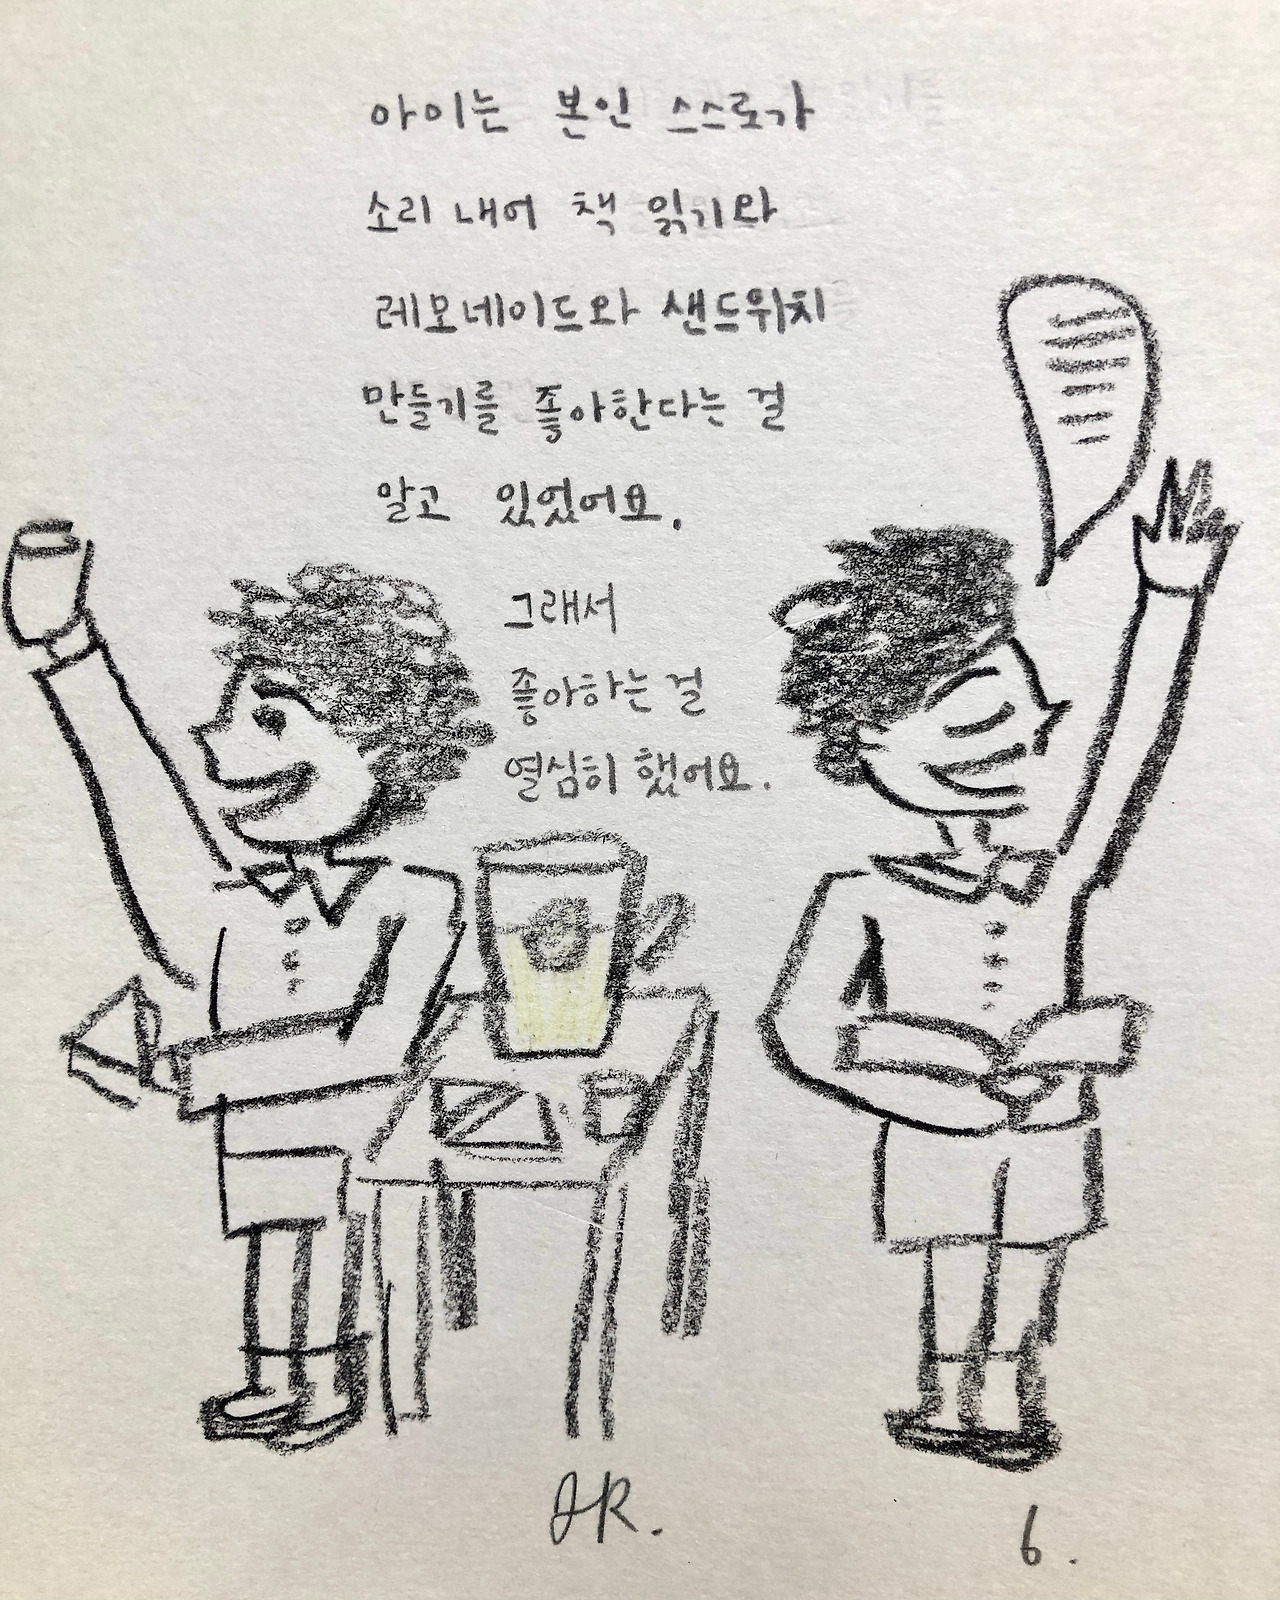 아이는 본인 스스로가
소리 내어 책 읽기와
레모네이드와 샌드위치
만들기를 좋아한다는 걸
알고 있었어요.
그래서
좋아하는 걸
열심히 했어요.
JR.
6.